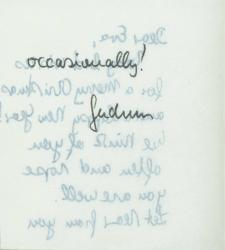 occasionally!
Gudrun
Dear Eva,
for a Merry Christmas
a Happy New Year!
We think of you
often and hope
you are well.
Let hear from you